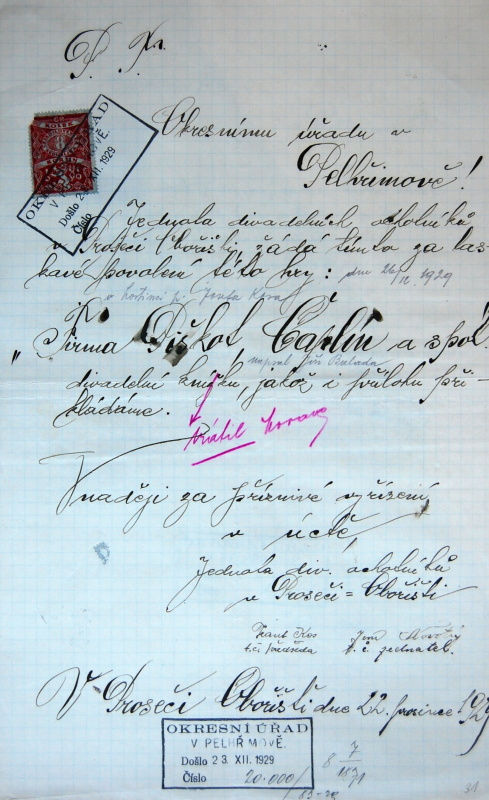 P. T.
Okresnímu úřadu v
Pelhřimově!
OKRESNÍ ÚŘAD
V PELHŘIMOVĚ.
Došlo 2 XII. 1929
Číslo
Jednota divadelních ochotníků
v Proseči Obořišti, žádá tímto za las-
kavé povolení této hry: dne 26/12 1929
v hostinci p.
"Firma Piškot Čaplin a spol"
napsal Jiří Balada
divadelní knížku, jakož i přílohu při-
kládáme.
Vrátil
V naději za příznivé vyřízení
v úctě,
Jednota div. ochotníků
v Proseči=Obořišti
Frant Kos
t.č. předseda t. č. jednatel.
V Proseči Obořišti dne 22. prosince 1929
OKRESNÍ ÚŘAD
V PELHŘIMOVĚ.
Došlo 23. XII. 1929
Číslo 20.000/
8 7/1871
31